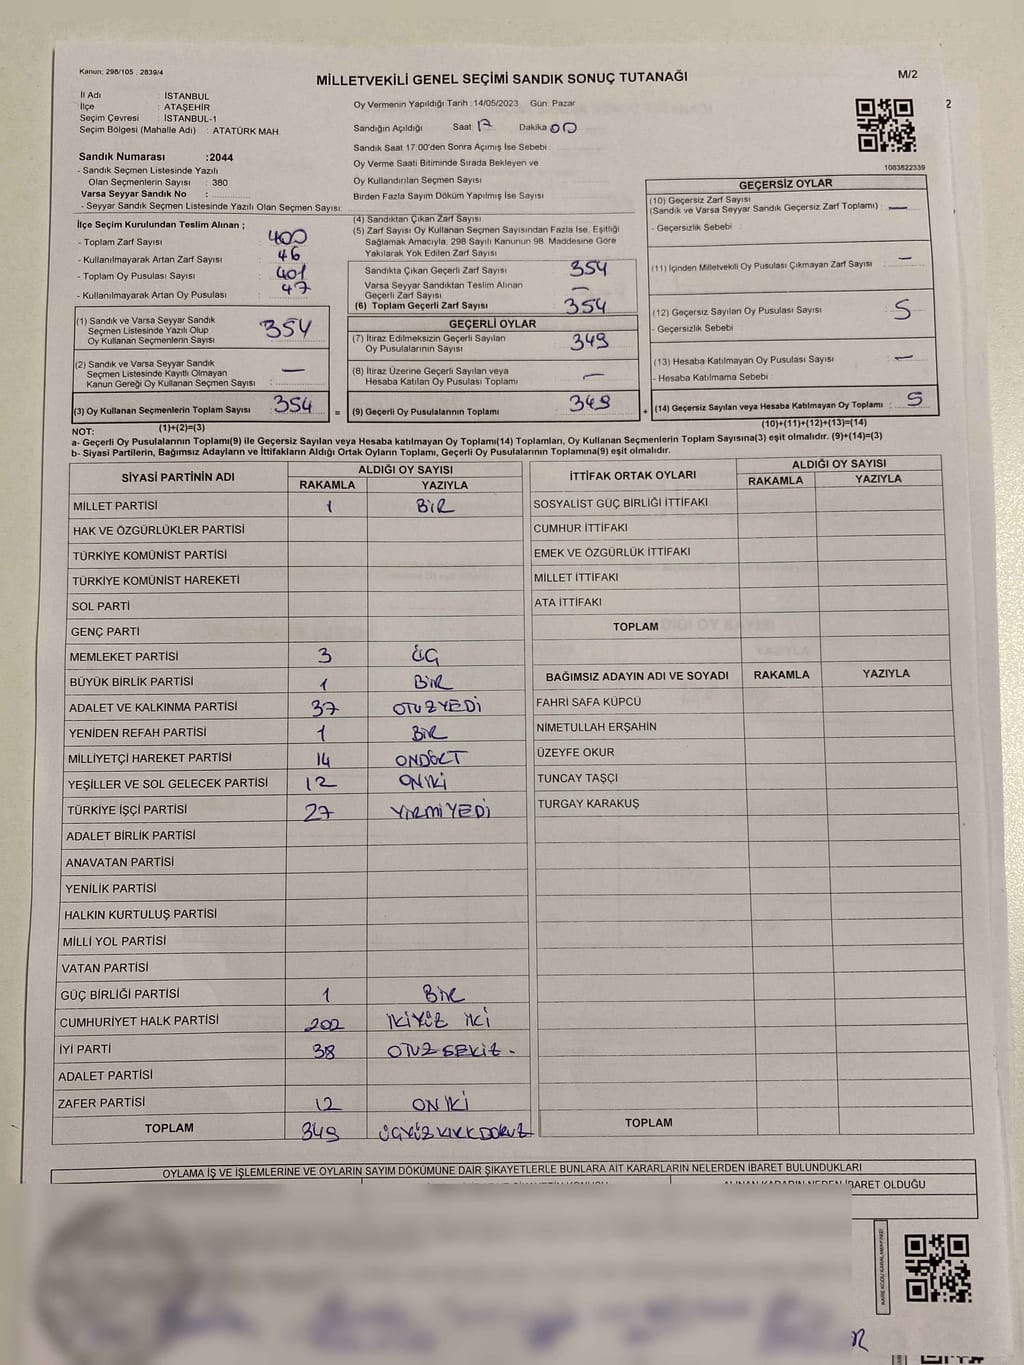 Kanun; 298/105 , 2839/4
MİLLETVEKİLİ GENEL SEÇİMİ SANDIK SONUÇ TUTANAĞI
M/2
2
İl Adı : İSTANBUL
İlçe : ATAŞEHİR
Seçim Çevresi : İSTANBUL-1
Seçim Bölgesi (Mahalle Adı) : ATATÜRK MAH.
Sandık Numarası :2044
- Sandık Seçmen Listesinde Yazılı
Olan Seçmenlerin Sayısı : 380
Varsa Seyyar Sandık No :
- Seyyar Sandık Seçmen Listesinde Yazılı Olan Seçmen Sayısı:
Oy Vermenin Yapıldığı Tarih :14/05/2023 Gün: Pazar
Sandığın Açıldığı Saat: 17 Dakika 00
Sandık Saat 17:00'den Sonra Açımış İse Sebebi :
Oy Verme Saati Bitiminde Sırada Bekleyen ve
Oy Kullandırılan Seçmen Sayısı
Birden Fazla Sayım Döküm Yapılmış İse Sayısı
1083822339
İlçe Seçim Kurulundan Teslim Alınan ;
- Toplam Zarf Sayısı : 400
- Kullanılmayarak Artan Zarf Sayısı : 46
- Toplam Oy Pusulası Sayısı : 401
- Kullanılmayarak Artan Oy Pusulası : 47
(1) Sandık ve Varsa Seyyar Sandık
Seçmen Listesinde Yazılı Olup
Oy Kullanan Seçmenlerin Sayısı : 354
(2) Sandık ve Varsa Seyyar Sandık
Seçmen Listesinde Kayıtlı Olmayan
Kanun Gereği Oy Kullanan Seçmen Sayısı : —
(3) Oy Kullanan Seçmenlerin Toplam Sayısı : 354
(1)+(2)=(3)
(4) Sandıktan Çıkan Zarf Sayısı
(5) Zarf Sayısı Oy Kullanan Seçmen Sayısından Fazla İse, Eşitliği
Sağlamak Amacıyla, 298 Sayılı Kanunun 98. Maddesine Göre
Yakılarak Yok Edilen Zarf Sayısı
Sandıkta Çıkan Geçerli Zarf Sayısı : 354
Varsa Seyyar Sandıktan Teslim Alınan
Geçerli Zarf Sayısı : —
(6) Toplam Geçerli Zarf Sayısı : 354
GEÇERLİ OYLAR
(7) İtiraz Edilmeksizin Geçerli Sayılan
Oy Pusulalarının Sayısı : 349
(8) İtiraz Üzerine Geçerli Sayılan veya
Hesaba Katılan Oy Pusulası Toplamı : —
= (9) Geçerli Oy Pusulalarının Toplamı : 349
GEÇERSİZ OYLAR
(10) Geçersiz Zarf Sayısı
(Sandık ve Varsa Seyyar Sandık Geçersiz Zarf Toplamı) : —
- Geçersizlik Sebebi :
(11) İçinden Milletvekili Oy Pusulası Çıkmayan Zarf Sayısı : —
(12) Geçersiz Sayılan Oy Pusulası Sayısı : 5
- Geçersizlik Sebebi
(13) Hesaba Katılmayan Oy Pusulası Sayısı : —
- Hesaba Katılmama Sebebi
+ (14) Geçersiz Sayılan veya Hesaba Katılmayan Oy Toplamı : 5
(10)+(11)+(12)+(13)=(14)
NOT:
a- Geçerli Oy Pusulalarının Toplamı(9) ile Geçersiz Sayılan veya Hesaba katılmayan Oy Toplamı(14) Toplamları, Oy Kullanan Seçmenlerin Toplam Sayısına(3) eşit olmalıdır. (9)+(14)=(3)
b- Siyasi Partilerin, Bağımsız Adayların ve İttifakların Aldığı Ortak Oyların Toplamı, Geçerli Oy Pusulalarının Toplamına(9) eşit olmalıdır.
SİYASİ PARTİNİN ADI ALDIĞI OY SAYISI
RAKAMLA YAZIYLA
MİLLET PARTİSİ 1 BİR
HAK VE ÖZGÜRLÜKLER PARTİSİ
TÜRKİYE KOMÜNİST PARTİSİ
TÜRKİYE KOMÜNİST HAREKETİ
SOL PARTİ
GENÇ PARTİ
MEMLEKET PARTİSİ 3 ÜÇ
BÜYÜK BİRLİK PARTİSİ 1 BİR
ADALET VE KALKINMA PARTİSİ 37 OTUZYEDİ
YENİDEN REFAH PARTİSİ 1 BİR
MİLLİYETÇİ HAREKET PARTİSİ 14 ONDÖRT
YEŞİLLER VE SOL GELECEK PARTİSİ 12 ONİKİ
TÜRKİYE İŞÇİ PARTİSİ 27 YİRMİYEDİ
ADALET BİRLİK PARTİSİ
ANAVATAN PARTİSİ
YENİLİK PARTİSİ
HALKIN KURTULUŞ PARTİSİ
MİLLİ YOL PARTİSİ
VATAN PARTİSİ
GÜÇ BİRLİĞİ PARTİSİ 1 BİR
CUMHURİYET HALK PARTİSİ 202 İKİYÜZ İKİ
İYİ PARTİ 38 OTUZ SEKİZ.
ADALET PARTİSİ
ZAFER PARTİSİ 12 ONİKİ
TOPLAM 349 ÜÇYÜZ KIRK DOKUZ
İTTİFAK ORTAK OYLARI ALDIĞI OY SAYISI
RAKAMLA YAZIYLA
SOSYALİST GÜÇ BİRLİĞİ İTTİFAKI
CUMHUR İTTİFAKI
EMEK VE ÖZGÜRLÜK İTTİFAKI
MİLLET İTTİFAKI
ATA İTTİFAKI
TOPLAM
BAĞIMSIZ ADAYIN ADI VE SOYADI RAKAMLA YAZIYLA
FAHRİ SAFA KÜPCÜ
NİMETULLAH ERŞAHİN
ÜZEYFE OKUR
TUNCAY TAŞÇI
TURGAY KARAKUŞ
TOPLAM
OYLAMA İŞ VE İŞLEMLERİNE VE OYLARIN SAYIM DÖKÜMÜNE DAİR ŞİKAYETLERLE BUNLARA AİT KARARLARIN NELERDEN İBARET BULUNDUKLARI
ALINAN KARARIN NEDEN İBARET OLDUĞU